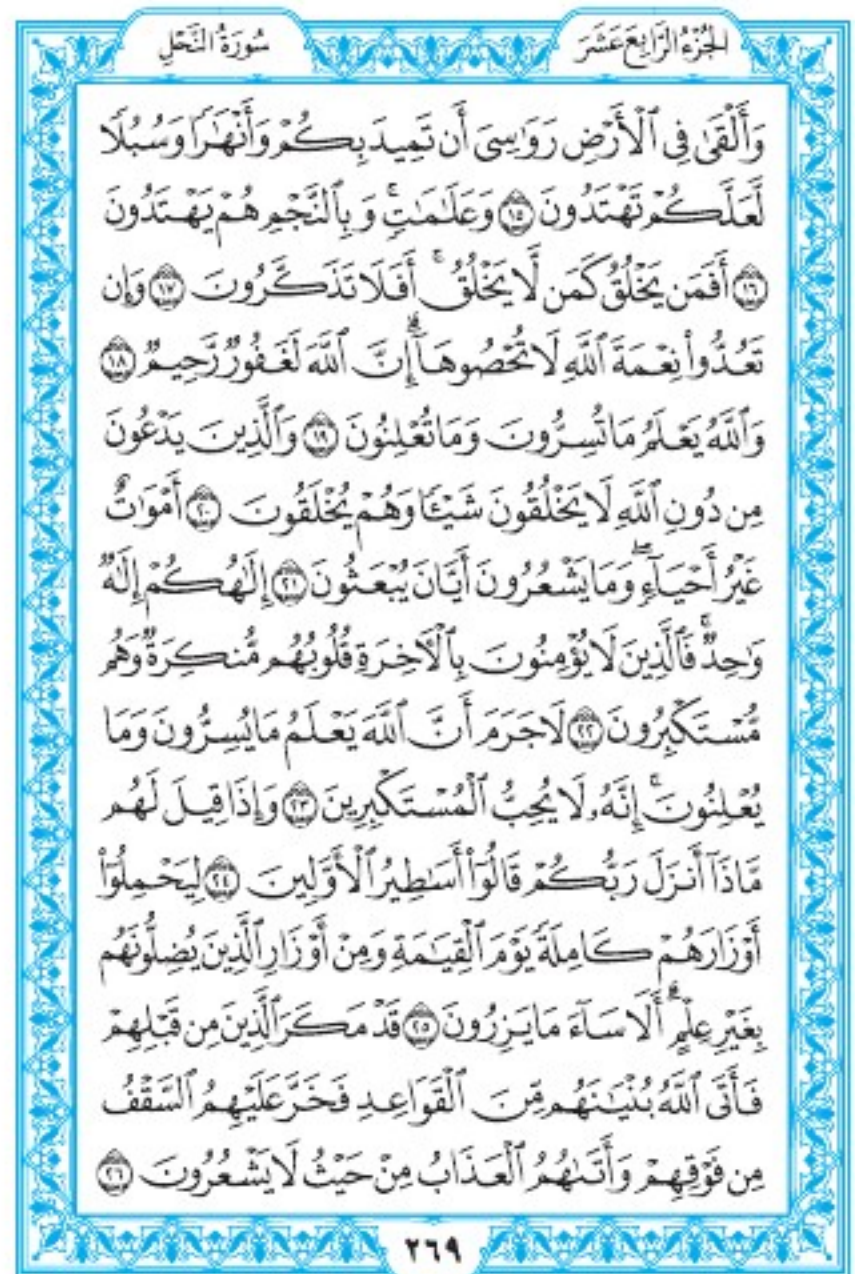 الجُزْءُ الرَّابِعَ عَشَرَ
سُورَةُ النَّحْلِ
وَأَلْقَىٰ فِى ٱلْأَرْضِ رَوَٰسِىَ أَن تَمِيدَ بِكُمْ وَأَنْهَٰرًا وَسُبُلًا
لَّعَلَّكُمْ تَهْتَدُونَ ١٥ وَعَلَٰمَٰتٍۚ وَبِٱلنَّجْمِ هُمْ يَهْتَدُونَ
١٦ أَفَمَن يَخْلُقُ كَمَن لَّا يَخْلُقُۚ أَفَلَا تَذَكَّرُونَ ١٧ وَإِن
تَعُدُّوا۟ نِعْمَةَ ٱللَّهِ لَا تُحْصُوهَآۗ إِنَّ ٱللَّهَ لَغَفُورٌ رَّحِيمٌ ١٨
وَٱللَّهُ يَعْلَمُ مَا تُسِرُّونَ وَمَا تُعْلِنُونَ ١٩ وَٱلَّذِينَ يَدْعُونَ
مِن دُونِ ٱللَّهِ لَا يَخْلُقُونَ شَيْـًٔا وَهُمْ يُخْلَقُونَ ٢٠ أَمْوَٰتٌ
غَيْرُ أَحْيَآءٍۖ وَمَا يَشْعُرُونَ أَيَّانَ يُبْعَثُونَ ٢١ إِلَٰهُكُمْ إِلَٰهٌ
وَٰحِدٌۚ فَٱلَّذِينَ لَا يُؤْمِنُونَ بِٱلْءَاخِرَةِ قُلُوبُهُم مُّنكِرَةٌ وَهُم
مُّسْتَكْبِرُونَ ٢٢ لَا جَرَمَ أَنَّ ٱللَّهَ يَعْلَمُ مَا يُسِرُّونَ وَمَا
يُعْلِنُونَۚ إِنَّهُۥ لَا يُحِبُّ ٱلْمُسْتَكْبِرِينَ ٢٣ وَإِذَا قِيلَ لَهُم
مَّاذَآ أَنزَلَ رَبُّكُمْ قَالُوٓا۟ أَسَٰطِيرُ ٱلْأَوَّلِينَ ٢٤ لِيَحْمِلُوٓا۟
أَوْزَارَهُمْ كَامِلَةً يَوْمَ ٱلْقِيَٰمَةِ وَمِنْ أَوْزَارِ ٱلَّذِينَ يُضِلُّونَهُم
بِغَيْرِ عِلْمٍۗ أَلَا سَآءَ مَا يَزِرُونَ ٢٥ قَدْ مَكَرَ ٱلَّذِينَ مِن قَبْلِهِمْ
فَأَتَى ٱللَّهُ بُنْيَٰنَهُم مِّنَ ٱلْقَوَاعِدِ فَخَرَّ عَلَيْهِمُ ٱلسَّقْفُ
مِن فَوْقِهِمْ وَأَتَىٰهُمُ ٱلْعَذَابُ مِنْ حَيْثُ لَا يَشْعُرُونَ ٢٦
٢٦٩